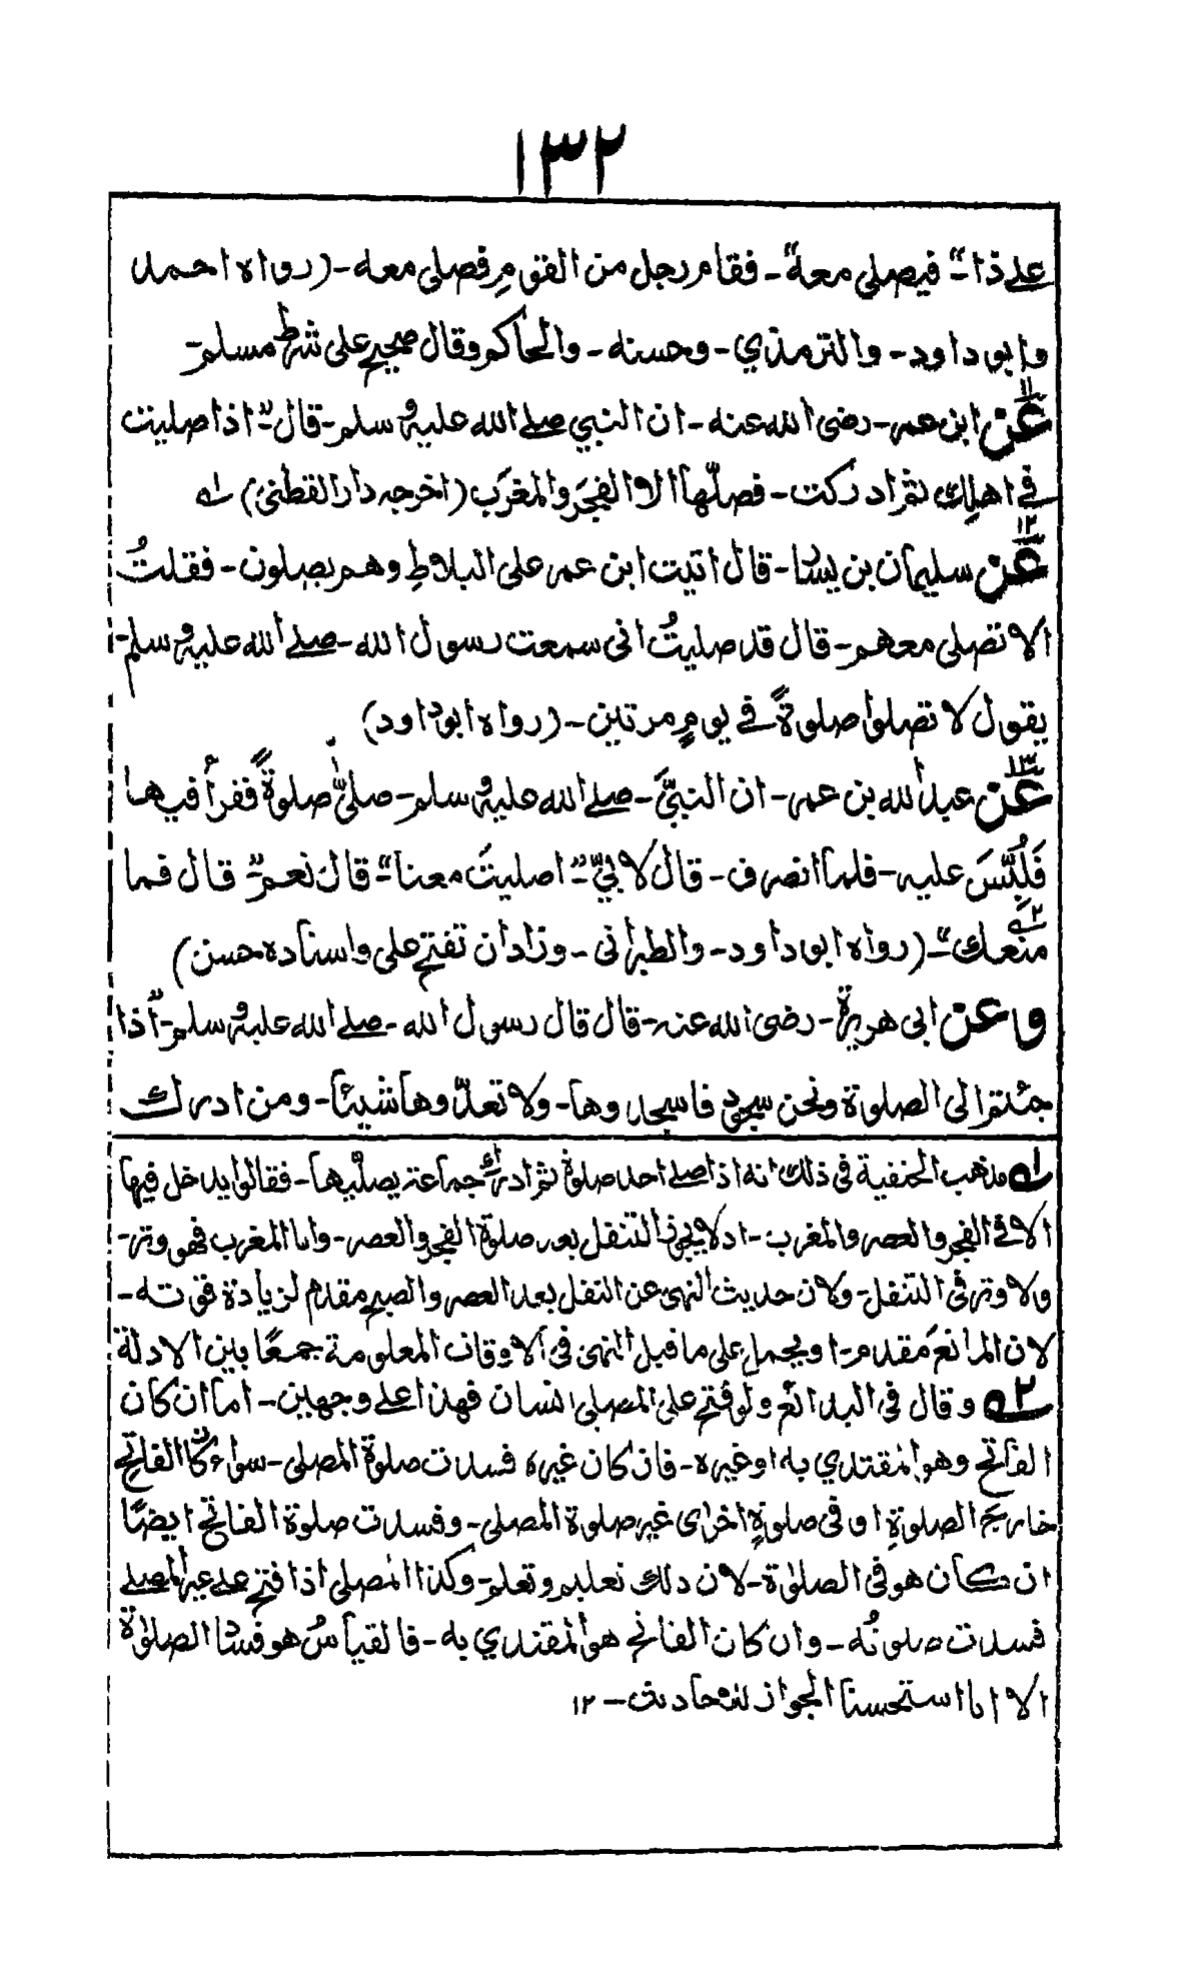 ١٣٢
علے ذا۔" فيصلى معه"۔ فقام رجل من القوم فصلى معه۔ (رواه احمد
وابو داود۔ والترمذي۔ وحسنه۔ والحاكم وقال صحيح على شرط مسلم۔
١١
عن ابن عمر۔ رضى الله عنه۔ ان النبي صلے الله عليه وسلم۔ قال۔" اذا صليت
فے اهلك ثم ادركت۔ فصلّها الا الفجَر والمغرَب (اخرجه دار القطنى) له
١٢
عن سليمان بن يسار۔ قال اتيت ابن عمر على البلاطِ وهم يصلون۔ فقلتُ
الا تصلى معهم۔ قال قد صليتُ انى سمعت رسول الله۔ صلے الله عليه وسلم۔
يقول لا تصلوا صلوةً فے يومٍ مرتين۔ (رواه ابوداود)
١٣
عن عبد الله بن عمر۔ ان النبىَّ۔ صلے الله عليه وسلم۔ صلىّٰ صلوةً فقرأ فيها
فَلُبِّسَ عليه۔ فلما انصرف۔ قال لابىٍّ۔" اصليتَ معنا"۔ قال نعم۔" قال فما
منعك"۔ ٢ (رواه ابوداود۔ والطبرانى۔ وزاد ان تفتح على واسناده حسن)
وعن ابى هريرة۔ رضى الله عنه۔ قال قال رسول الله۔ صلے الله عليه وسلم۔" اذا
جئتم الى الصلوة ونحن سجود فاسجدوها۔ ولا تعدّوها شيئا۔ ومن ادرك
١ه مذهب الحنفية فى ذلك انه اذا صلے احد صلوة ثم ادرك جماعة يصليها۔ فقالوا يدخل فيها
الا فے الفجر والعصر والمغرب۔ اذ لا يجوز التنفل بعد صلوة الفجر والعصر۔ واما المغرب فهو وتر۔
ولا وتر فى التنفل۔ ولان حديث النهى عن التنفل بعد العصر والصبح مقدم لزيادة قوته۔
لان المانعَ مقدم۔ او يحمل على ما قبل النهى فى الاوقات المعلومة جمعًا بين الادلة
٢ه وقال فى البدائع ولو فتح على المصلى انسان فهذا علے وجهين۔ اما ان كان
الفاتح وهو المقتدي به او غيره۔ فان كان غيره فسدت صلوة المصلى۔ سواء كان الفاتح
خارج الصلوةِ او فى صلوةٍ اخرى غير صلوة المصلى۔ وفسدت صلوة الفاتح ايضًا
ان كان هو فى الصلوٰة۔ لان ذلك تعليم وتعلم۔ وكذا المصلى اذا فتح علے غير المصلے
فسدت صلوتُه۔ وان كان الفاتح هو المقتدي به۔ فالقياسُ هو فساد الصلوٰة
الا انا استحسنا الجواز للاحاديث۔ ١٢